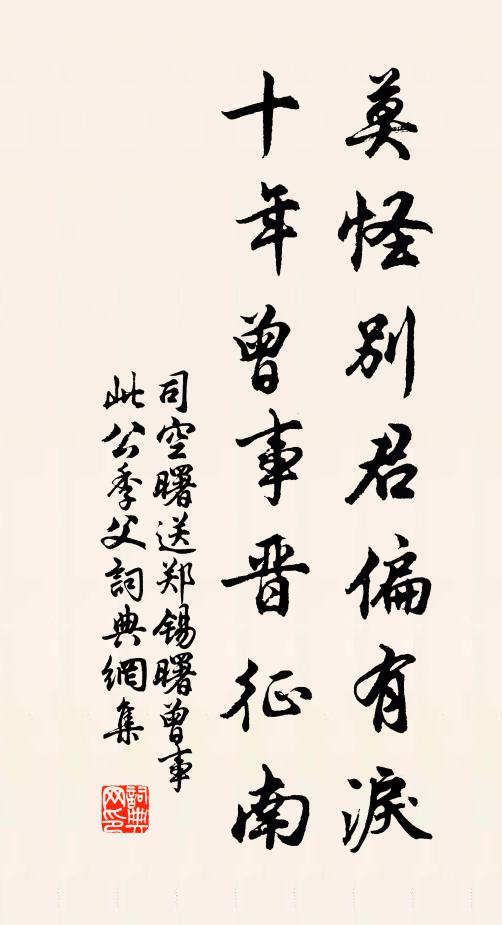 莫怪别君偏有淚
十年曾事晋征南
司空曙送郑锡曙曾事
此公季父詞典網集
詞典网印